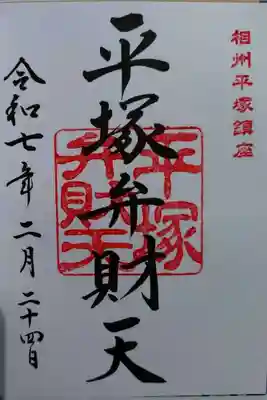 相州平塚鎮座
平塚弁財天
平塚
弁財天
令和七年二月二十四日